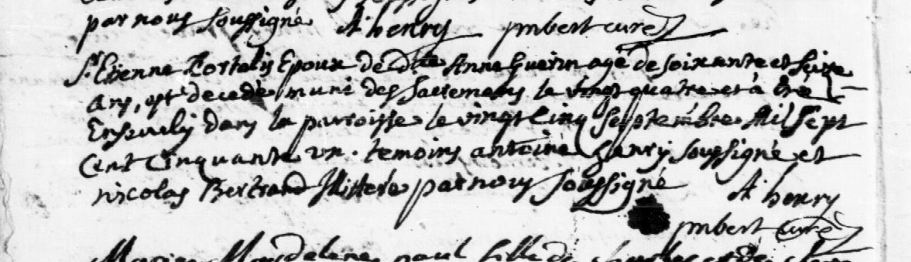 par nous soussigné A henry jmbert curé
Sr Etienne Portalis Epoux de dlle Anne Guerin agé de soixante et seize
ans, est decedé muni des sacremens le vingt quatre et à été
Enseveli dans la paroisse le vingt cinq septembre Mil sept
Cent Cinquante un. temoins antoine hanry soussigné et
nicolas Bertrand Illitere par nous soussigné A henry
jmbert curé
Magdelene paul fille de charles et de